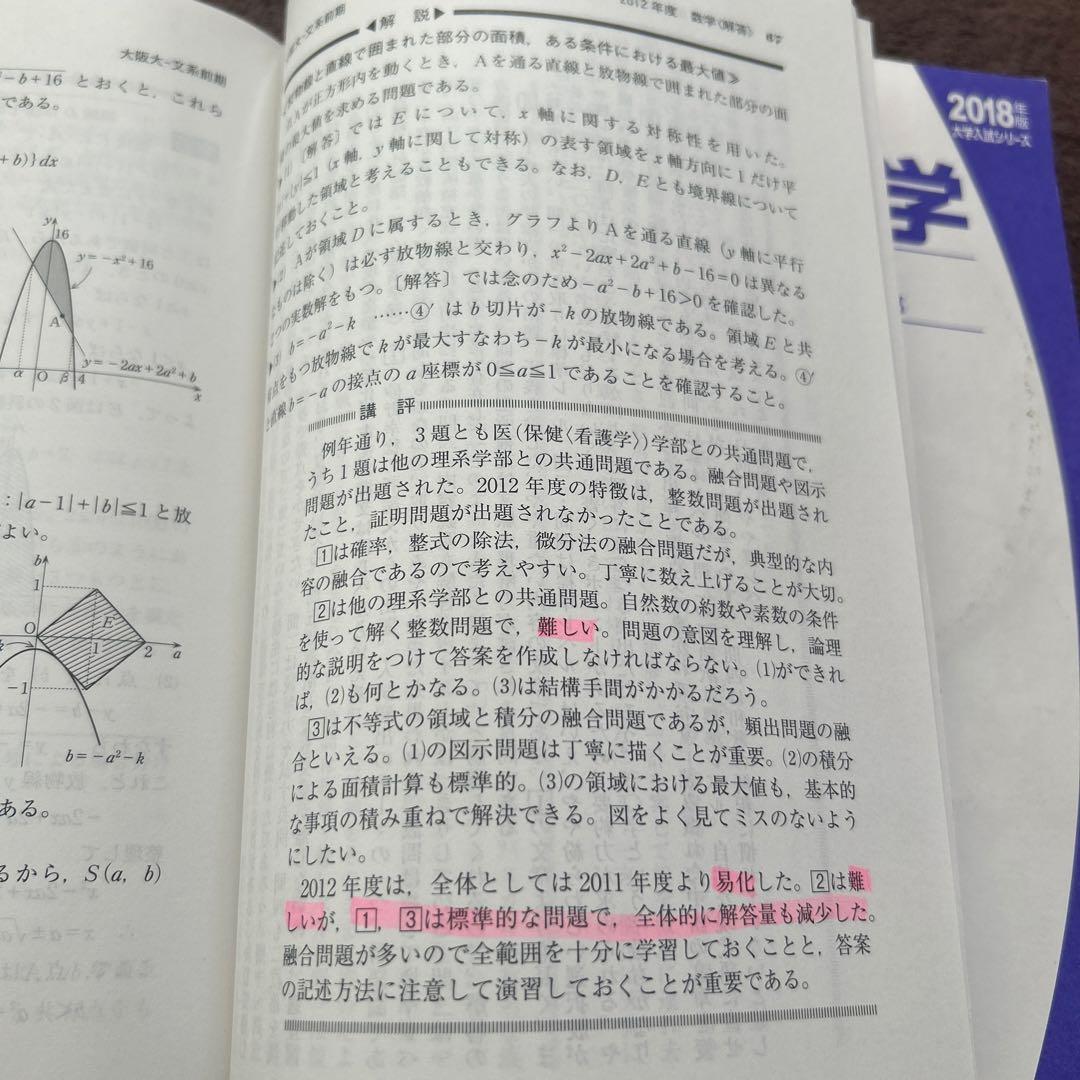 大阪大-文系前期
-b+16 とおくと，これら
である。
+b)}dx
y
16
y=-x²+16
A
y=-2ax+2a²+b
α O β 4 x
:|a-1|+|b|≦1 と放
よい。
b
1
E
O 1 2 a
-1
b=-a²-k
ある。
るから，S(a, b)
大-文系前期
2012年度 数学〈解答〉 67
◀解 説▶
物線と直線で囲まれた部分の面積，ある条件における最大値≫
Aが正方形内を動くとき，Aを通る直線と放物線で囲まれた部分の面
の最大値を求める問題である。
〔解答〕ではEについて，x軸に関する対称性を用いた。
+|y|≦1（x軸，y軸に関して対称）の表す領域をx軸方向に1だけ平
移動した領域と考えることもできる。なお，D，Eとも境界線について
しておくこと。
Aが領域Dに属するとき，グラフよりAを通る直線（y軸に平行
なものは除く）は必ず放物線と交わり，x²-2ax+2a²+b-16=0は異なる
つの実数解をもつ。〔解答〕では念のため-a²-b+16>0を確認した。
▶(3) b=-a²-k ……④′ はb切片が-kの放物線である。領域Eと共
点をもつ放物線でkが最大すなわち-kが最小になる場合を考える。④′
と直線b=-aの接点のa座標が0≦a≦1であることを確認すること。
講 評
例年通り，3題とも医(保健〈看護学〉)学部との共通問題で，
うち1題は他の理系学部との共通問題である。融合問題や図示
問題が出題された。2012年度の特徴は，整数問題が出題され
たこと，証明問題が出題されなかったことである。
1は確率，整式の除法，微分法の融合問題だが，典型的な内
容の融合であるので考えやすい。丁寧に数え上げることが大切。
2は他の理系学部との共通問題。自然数の約数や素数の条件
を使って解く整数問題で，難しい。問題の意図を理解し，論理
的な説明をつけて答案を作成しなければならない。(1)ができれ
ば，(2)も何とかなる。(3)は結構手間がかかるだろう。
3は不等式の領域と積分の融合問題であるが，頻出問題の融
合といえる。(1)の図示問題は丁寧に描くことが重要。(2)の積分
による面積計算も標準的。(3)の領域における最大値も，基本的
な事項の積み重ねで解決できる。図をよく見てミスのないよう
にしたい。
2012年度は，全体としては2011年度より易化した。2は難
しいが，1，3は標準的な問題で，全体的に解答量も減少した。
融合問題が多いので全範囲を十分に学習しておくことと，答案
の記述方法に注意して演習しておくことが重要である。
2018年版
大学入試シリーズ
学